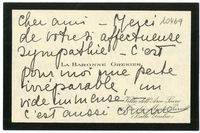 Cher ami - Merci 10469
de votre si affectueuse
sympathie - C'est
LA BARONNE GRENIER
pour moi une perte
irréparable, un
vide immense !
c'est aussi